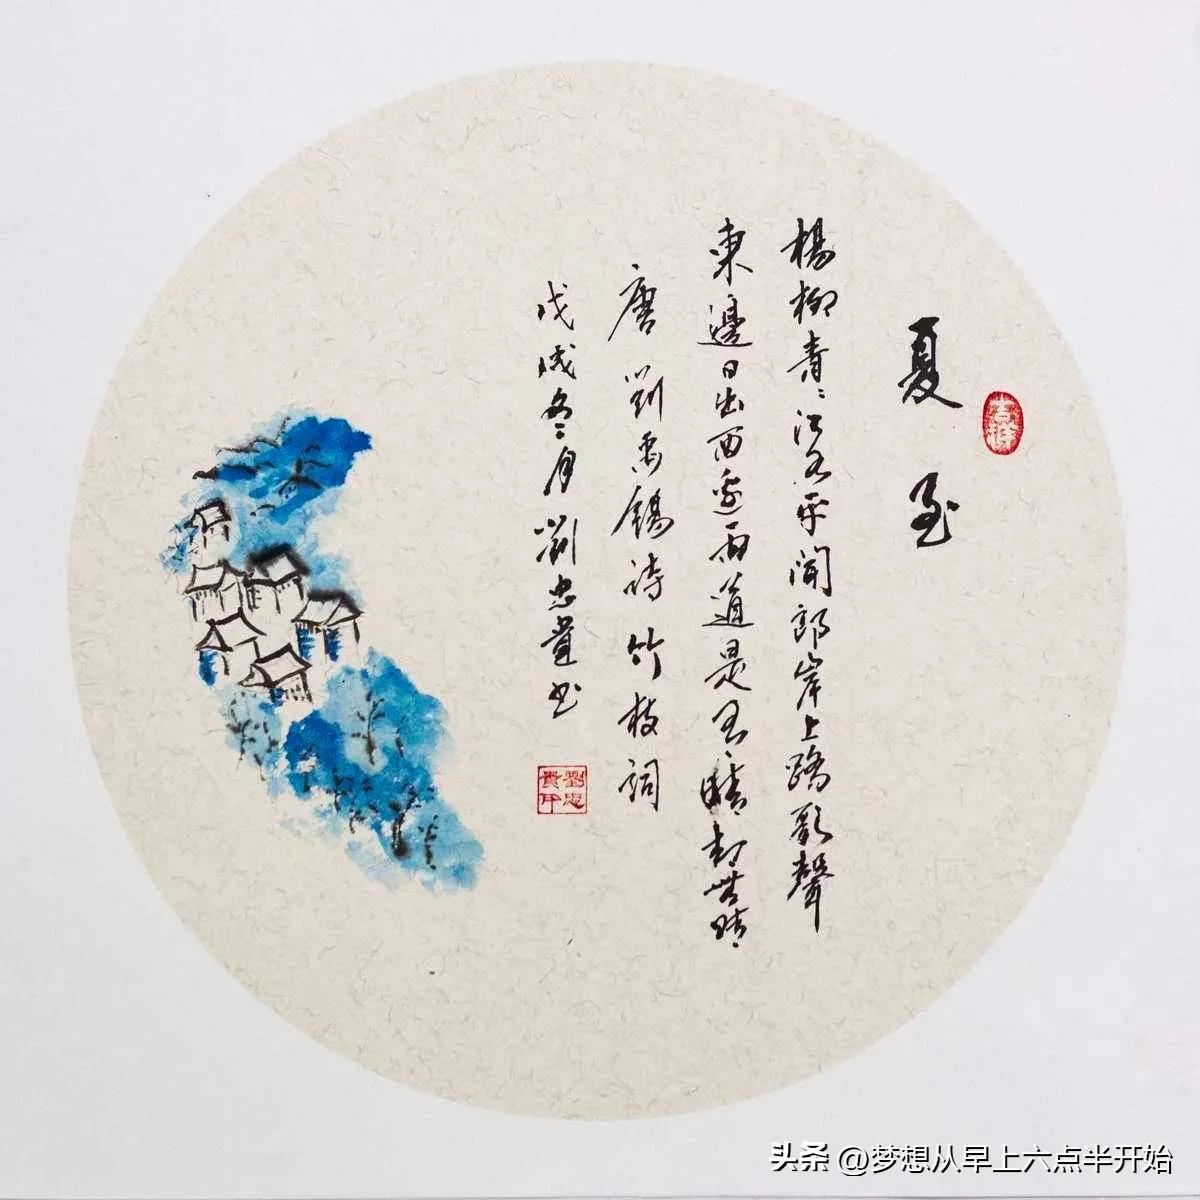 夏至
吉祥
楊柳青〻江水平聞郎岸上踏歌聲
東邊日出西邊雨道是有晴却無晴
唐劉禹錫詩竹枝詞
戊戌冬月劉忠貴书
劉忠貴印
头条 @梦想从早上六点半开始